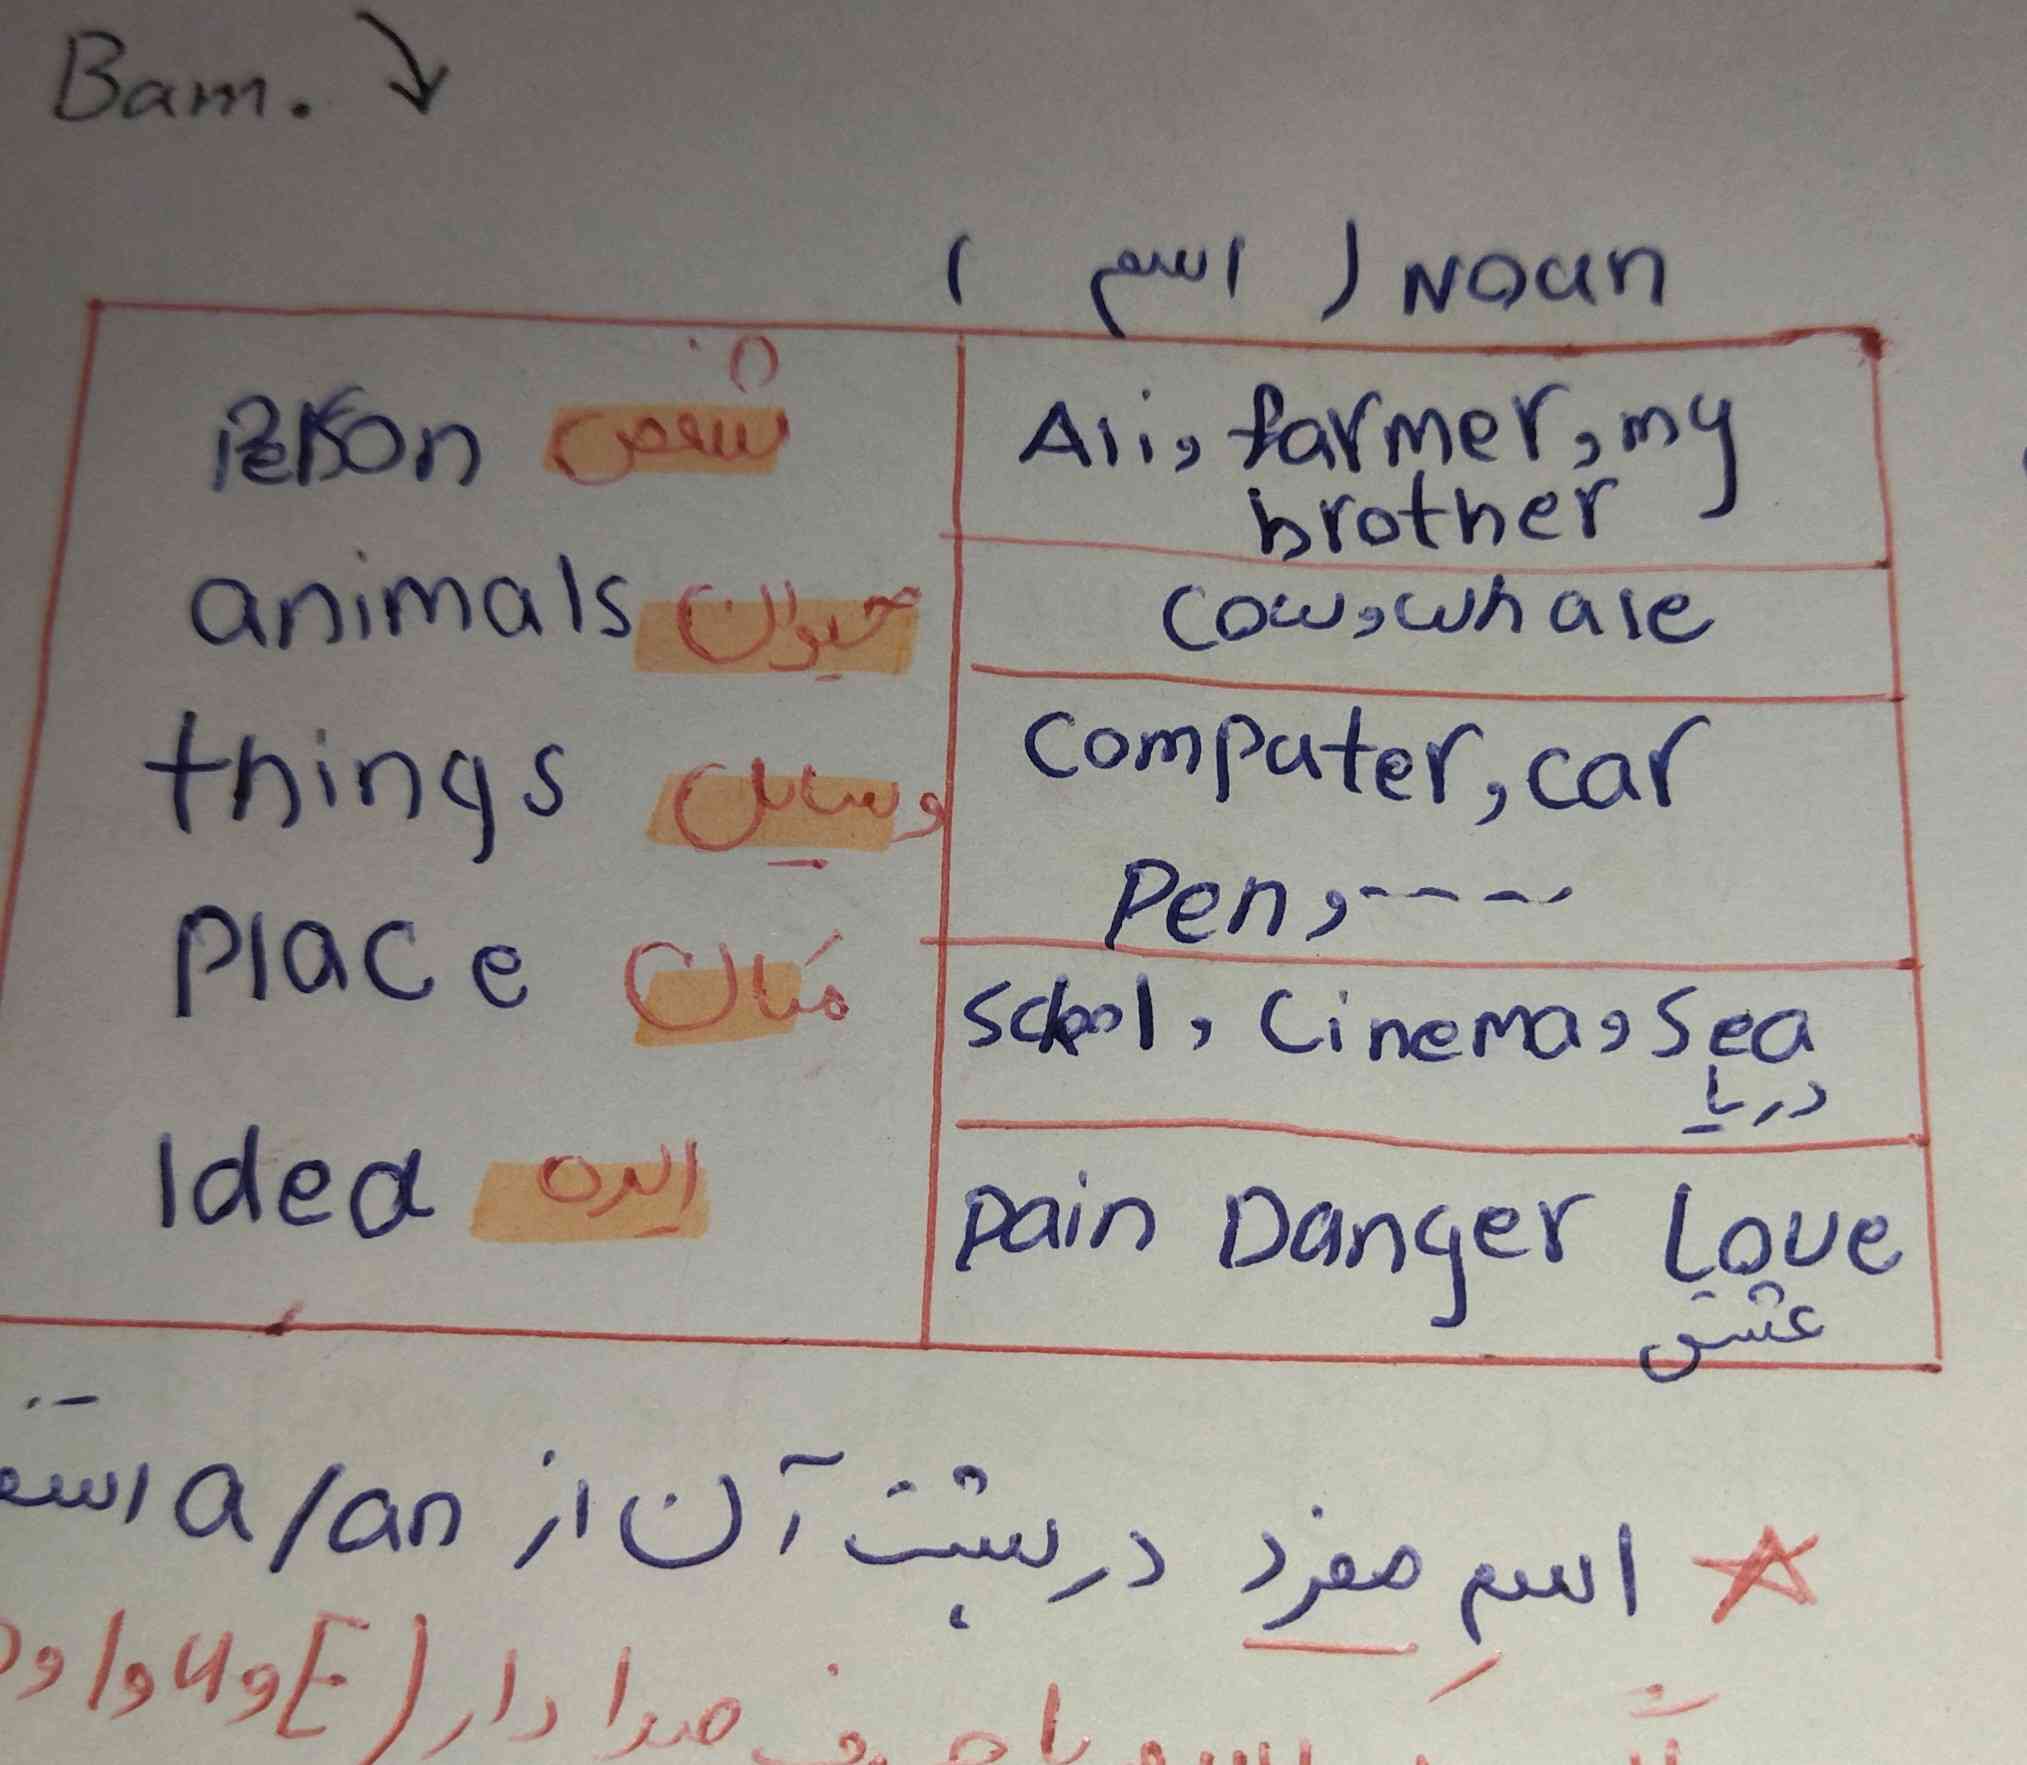 Bam.
Noun ( اسم )
Person شخص
Ali, farmer, my
brother
animals حیوان
cow, whale
things وسایل
computer, car
Pen, ----
Place مَکان
School, Cinema, Sea
دریا
Idea ایده
Pain Danger Love
عشق
اسمِ مفرد در پشت آن از a/an
صدا دار (E و u و ا و